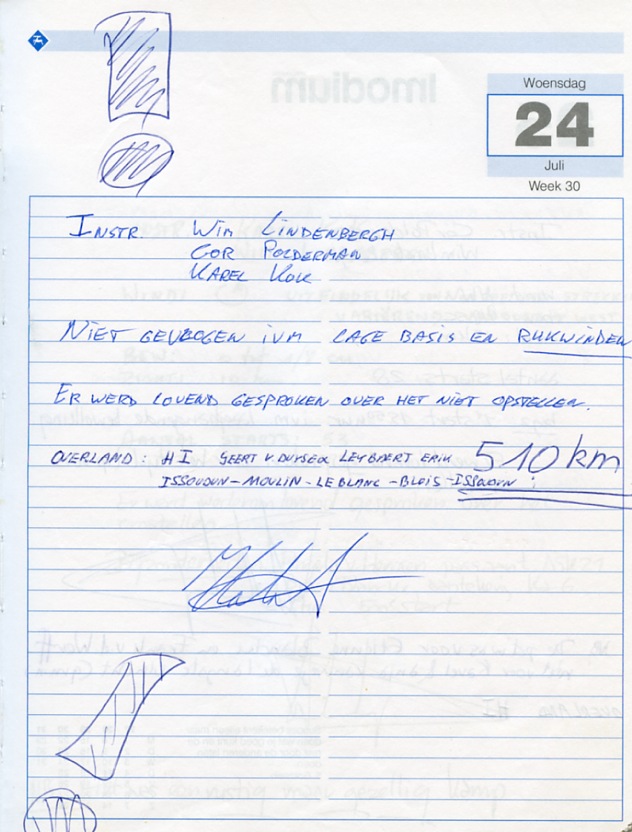 Imodium
Woensdag
24
Juli
Week 30
INSTR. WIM LINDENBERGH
COR POLDERMAN
KAREL KOK
NIET GEVLOGEN IVM LAGE BASIS EN RUKWINDEN
ER WERD LOVEND GESPROKEN OVER HET NIET OPSTELLEN.
OVERLAND: HI GEERT V. ERIK 510 km
ISSOUDUN-MOULIN-LEBLANC-BLOIS-ISSOUDUN!